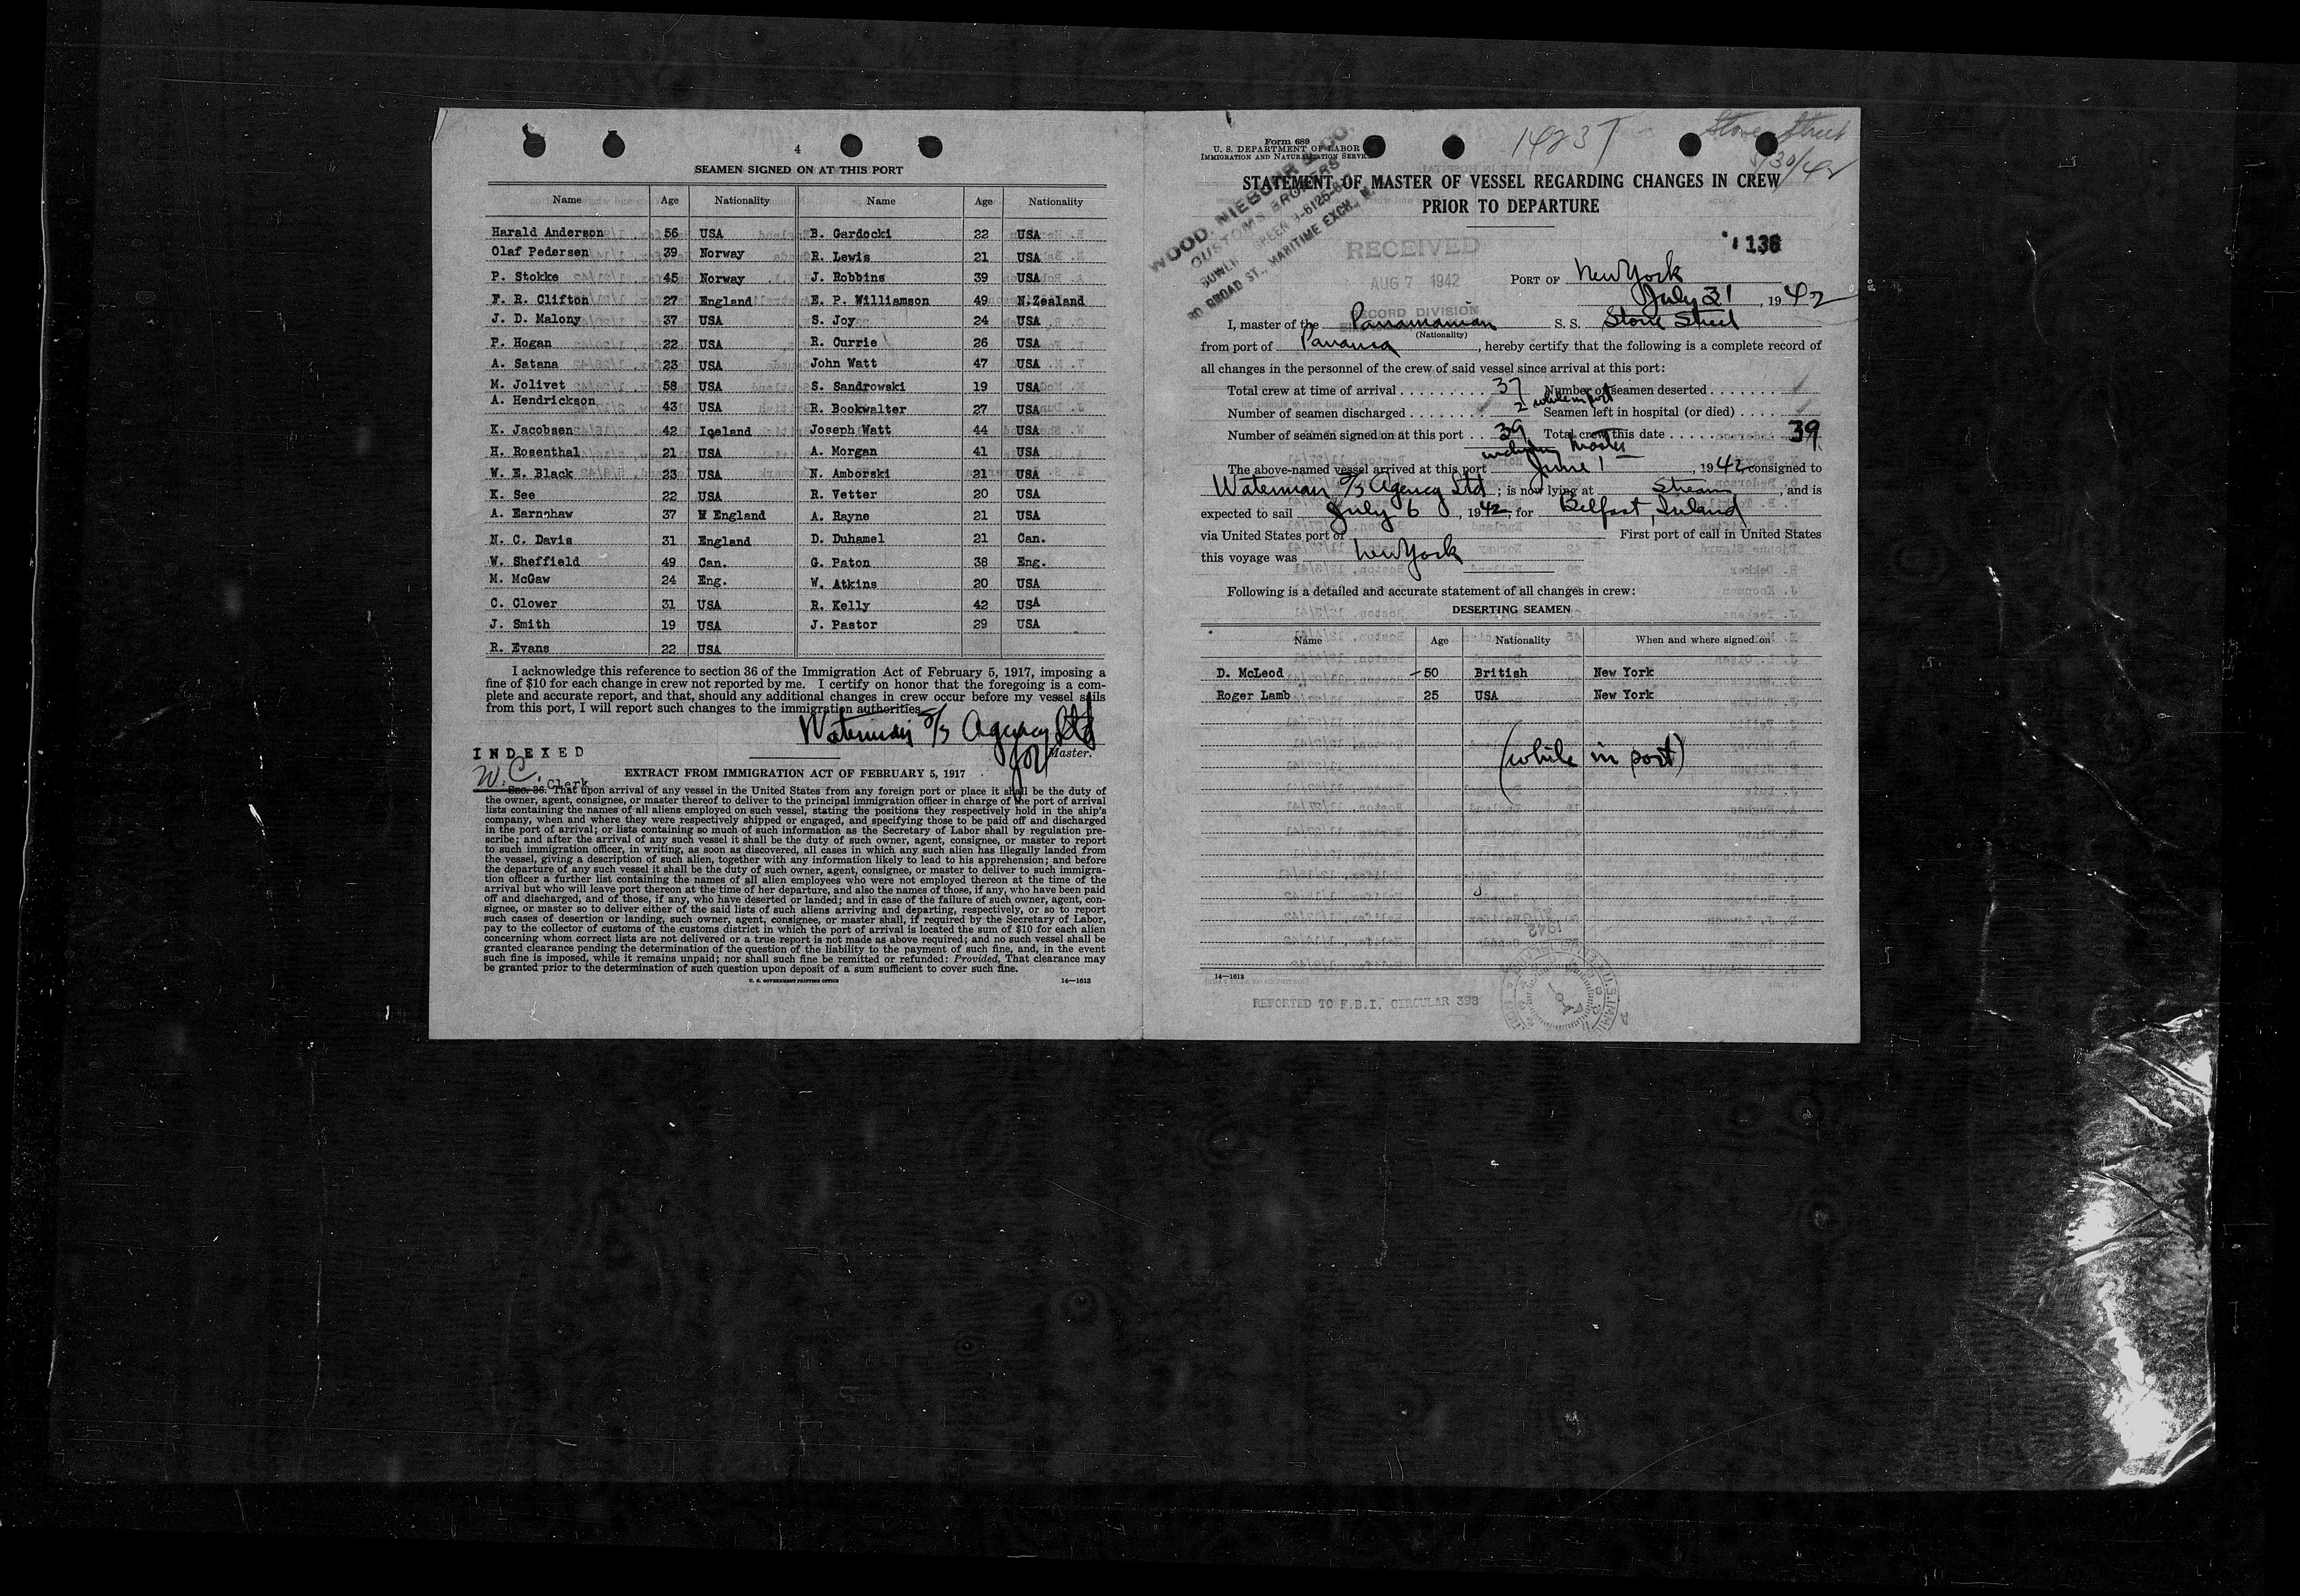 4
SEAMEN SIGNED ON AT THIS PORT
Name Age Nationality Name Age Nationality
Harald Anderson 56 USA B. Gardocki 22 USA
Olaf Pedersen 39 Norway R. Lewis 21 USA
P. Stokke 45 Norway J. Robbins 39 USA
F. R. Clifton 27 England E. P. Williamson 49 N.Zealand
J. D. Malony 37 USA S. Joy 24 USA
P. Hogan 22 USA R. Currie 26 USA
A. Satana 23 USA John Watt 47 USA
M. Jolivet 58 USA S. Sandrowski 19 USA
A. Hendrickson 43 USA R. Bookwalter 27 USA
K. Jacobsen 42 Iceland Joseph Watt 44 USA
H. Rosenthal 21 USA A. Morgan 41 USA
W. E. Black 23 USA N. Amborski 21 USA
K. See 22 USA R. Vetter 20 USA
A. Earnshaw 37 England A. Rayne 21 USA
N. C. Davis 31 England D. Duhamel 21 Can.
W. Sheffield 49 Can. G. Paton 38 Eng.
M. McGaw 24 Eng. W. Atkins 20 USA
C. Clower 31 USA R. Kelly 42 USA
J. Smith 19 USA J. Pastor 29 USA
R. Evans 22 USA
I acknowledge this reference to section 36 of the Immigration Act of February 5, 1917, imposing a
fine of $10 for each change in crew not reported by me. I certify on honor that the foregoing is a com-
plete and accurate report, and that, should any additional changes in crew occur before my vessel sails
from this port, I will report such changes to the immigration authorities.
Waterman S/S Agency Ltd
for Master.
INDEXED
W.C. Clerk
EXTRACT FROM IMMIGRATION ACT OF FEBRUARY 5, 1917
SEC. 36. That upon arrival of any vessel in the United States from any foreign port or place it shall be the duty of
the owner, agent, consignee, or master thereof to deliver to the principal immigration officer in charge of the port of arrival
lists containing the names of all aliens employed on such vessel, stating the positions they respectively hold in the ship's
company, when and where they were respectively shipped or engaged, and specifying those to be paid off and discharged
in the port of arrival; or lists containing so much of such information as the Secretary of Labor shall by regulation pre-
scribe; and after the arrival of any such vessel it shall be the duty of such owner, agent, consignee, or master to report
to such immigration officer, in writing, as soon as discovered, all cases in which any such alien has illegally landed from
the vessel, giving a description of such alien, together with any information likely to lead to his apprehension; and before
the departure of any such vessel it shall be the duty of such owner, agent, consignee, or master to deliver to such immigra-
tion officer a further list containing the names of all alien employees who were not employed thereon at the time of the
arrival but who will leave port thereon at the time of her departure, and also the names of those, if any, who have been paid
off and discharged, and of those, if any, who have deserted or landed; and in case of the failure of such owner, agent, con-
signee, or master so to deliver either of the said lists of such aliens arriving and departing, respectively, or so to report
such cases of desertion or landing, such owner, agent, consignee, or master shall, if required by the Secretary of Labor,
pay to the collector of customs of the customs district in which the port of arrival is located the sum of $10 for each alien
concerning whom correct lists are not delivered or a true report is not made as above required; and no such vessel shall be
granted clearance pending the determination of the question of the liability to the payment of such fine, and, in the event
such fine is imposed, while it remains unpaid; nor shall such fine be remitted or refunded: Provided, That clearance may
be granted prior to the determination of such question upon deposit of a sum sufficient to cover such fine.
U. S. GOVERNMENT PRINTING OFFICE 14—1613
Form 689
U. S. DEPARTMENT OF LABOR
IMMIGRATION AND NATURALIZATION SERVICE
1423T
Stone Street
/30/42
WOOD, NIEBUHR & CO.
CUSTOMS BROKERS
80 BROAD ST., MARITIME EXCH.
STATEMENT OF MASTER OF VESSEL REGARDING CHANGES IN CREW
PRIOR TO DEPARTURE
RECEIVED
AUG 7 1942
RECORD DIVISION
138
PORT OF New York
July 31, 1942
I, master of the Panamanian S. S. Stone Street
(Nationality)
from port of Panama, hereby certify that the following is a complete record of
all changes in the personnel of the crew of said vessel since arrival at this port:
Total crew at time of arrival 37 Number of seamen deserted
Number of seamen discharged 2 while in port Seamen left in hospital (or died)
Number of seamen signed on at this port 39 Total crew this date 39
including Master
The above-named vessel arrived at this port June 1, 1942 consigned to
Waterman S/S Agency Ltd; is now lying at Stream, and is
expected to sail July 6, 1942, for Belfast, Ireland
via United States port of First port of call in United States
this voyage was New York
Following is a detailed and accurate statement of all changes in crew:
DESERTING SEAMEN
Name Age Nationality When and where signed on
D. McLeod 50 British New York
Roger Lamb 25 USA New York
(while in port)
14—1613
REPORTED TO F.B.I. CIRCULAR 393